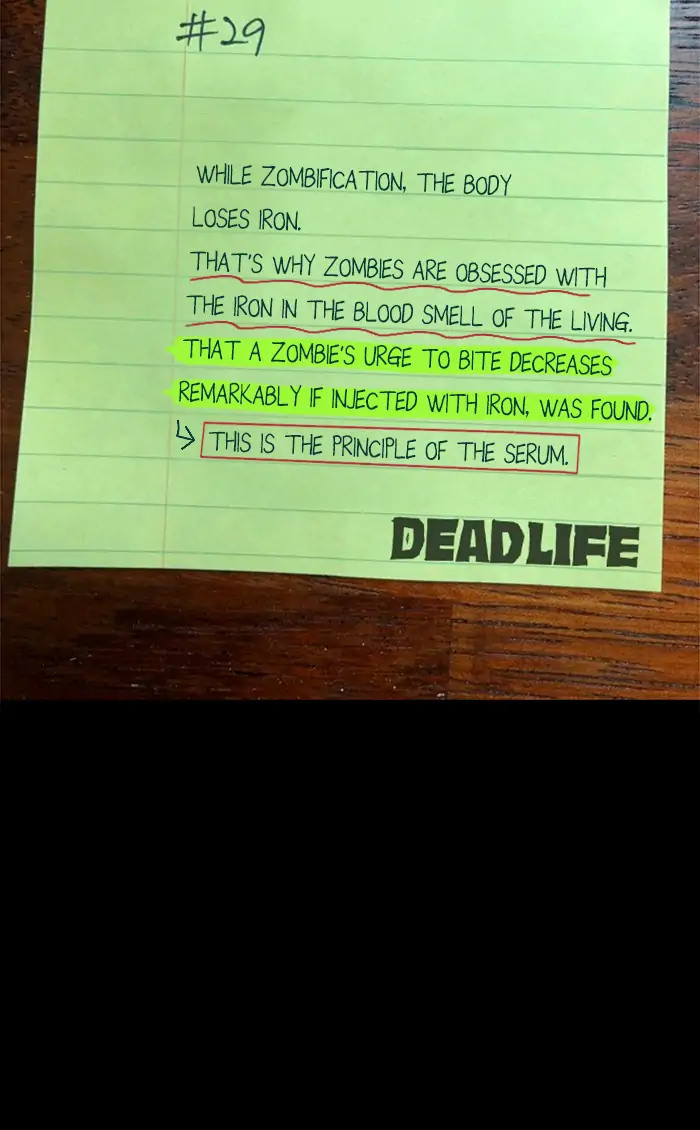 #29
WHILE ZOMBIFICATION, THE BODY
LOSES IRON.
THAT'S WHY ZOMBIES ARE OBSESSED WITH
THE IRON IN THE BLOOD SMELL OF THE LIVING.
THAT A ZOMBIE'S URGE TO BITE DECREASES
REMARKABLY IF INJECTED WITH IRON, WAS FOUND.
↳ THIS IS THE PRINCIPLE OF THE SERUM.
DEAD LIFE